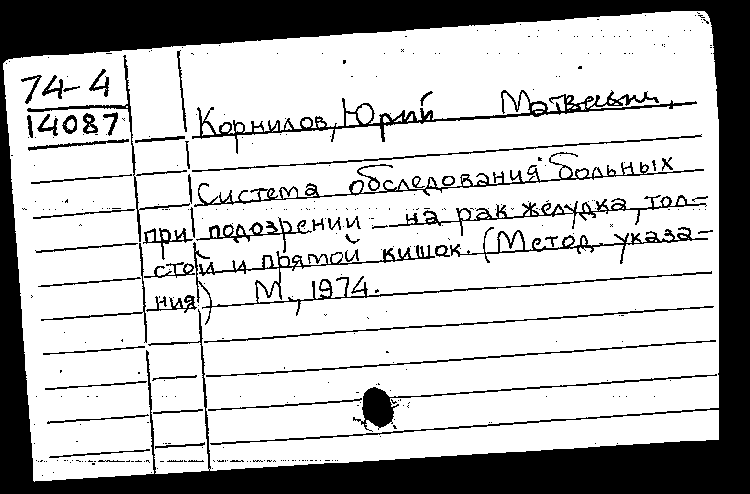 74-4
14087
Корнилов, Юрий Матвеевич.
Система обследования больных
при подозрении на рак желудка, тол-
стой и прямой кишок. (Метод. указа-
ния) М., 1974.